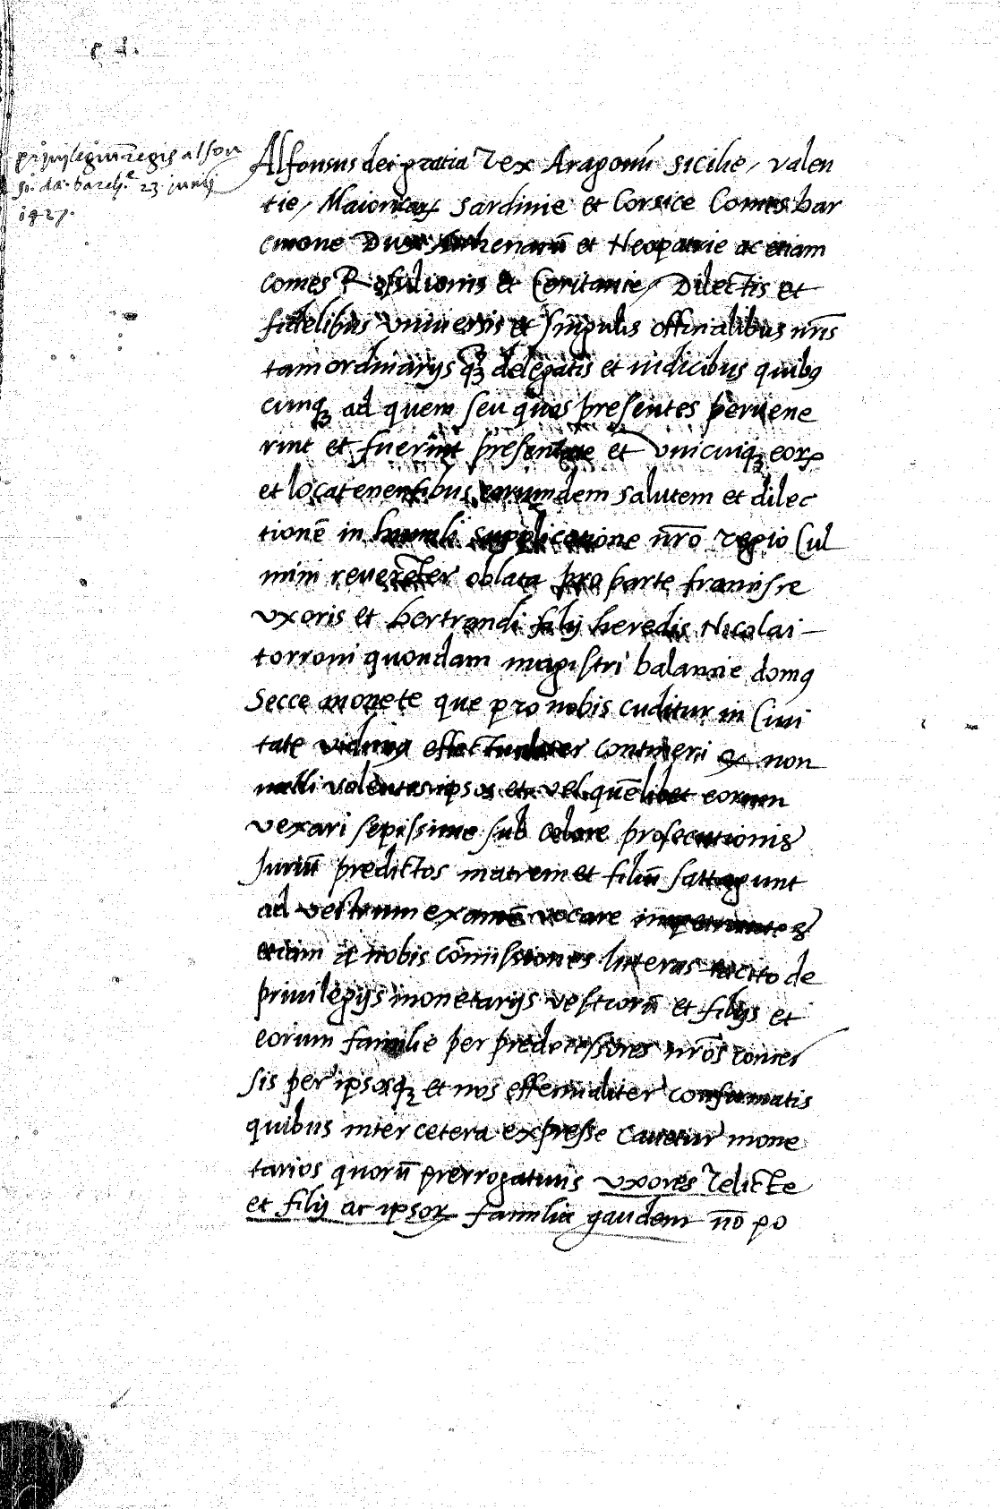 privilegiū regis alfon
si. da. barch.e 23 junij
1427.
Alfonsus dei gratia rex Aragonū Sicilie, valen
tie, Maioricarꝝ Sardinie et Corsice Comes bar
cinone Dux Athenarū et Neopatrie ac etiam
comes Rossilionis et Ceritanie, Dilectis et
fidelibus vniuersis et singulis officialibus nr̄is
tam ordinarijs qꝫ delegatis et iudicibus quibꝯ
cunqꝫ ad quem seu quos presentes peruene
rint et fuerint presentate et vnicuiqꝫ eorꝝ
et locatenentibus earumdem salutem et dilec
tionē in humili supplicatione nr̄o regio Cul
mini reuerēter oblata pro parte francisce
vxoris et bertrandi filij heredis Nicolai
torroni quondam magistri balancie domꝯ
Secce monete que pro nobis cuditur in Ciui
tate effectualiter contineri non
nulli volentes ipsos et vel quēlibet eorum
vexari sepissime sub colore prosecutionis
Juriū predictos matrem et filiū sattagunt
ad vestrum examē vocare impetrantes
etiam a nobis cōmissiones litteras tacito de
priuilegijs monetarijs vestrorū et filijs et
eorum familie per predecessores nr̄os conces
sis per ipsosqꝫ et nos effectualiter confirmatis
quibus inter cetera expresse cauetur mone
tarios quorū prerrogatiuis vxores relicte
et filij ac ipsorꝝ familia gaudent nō po